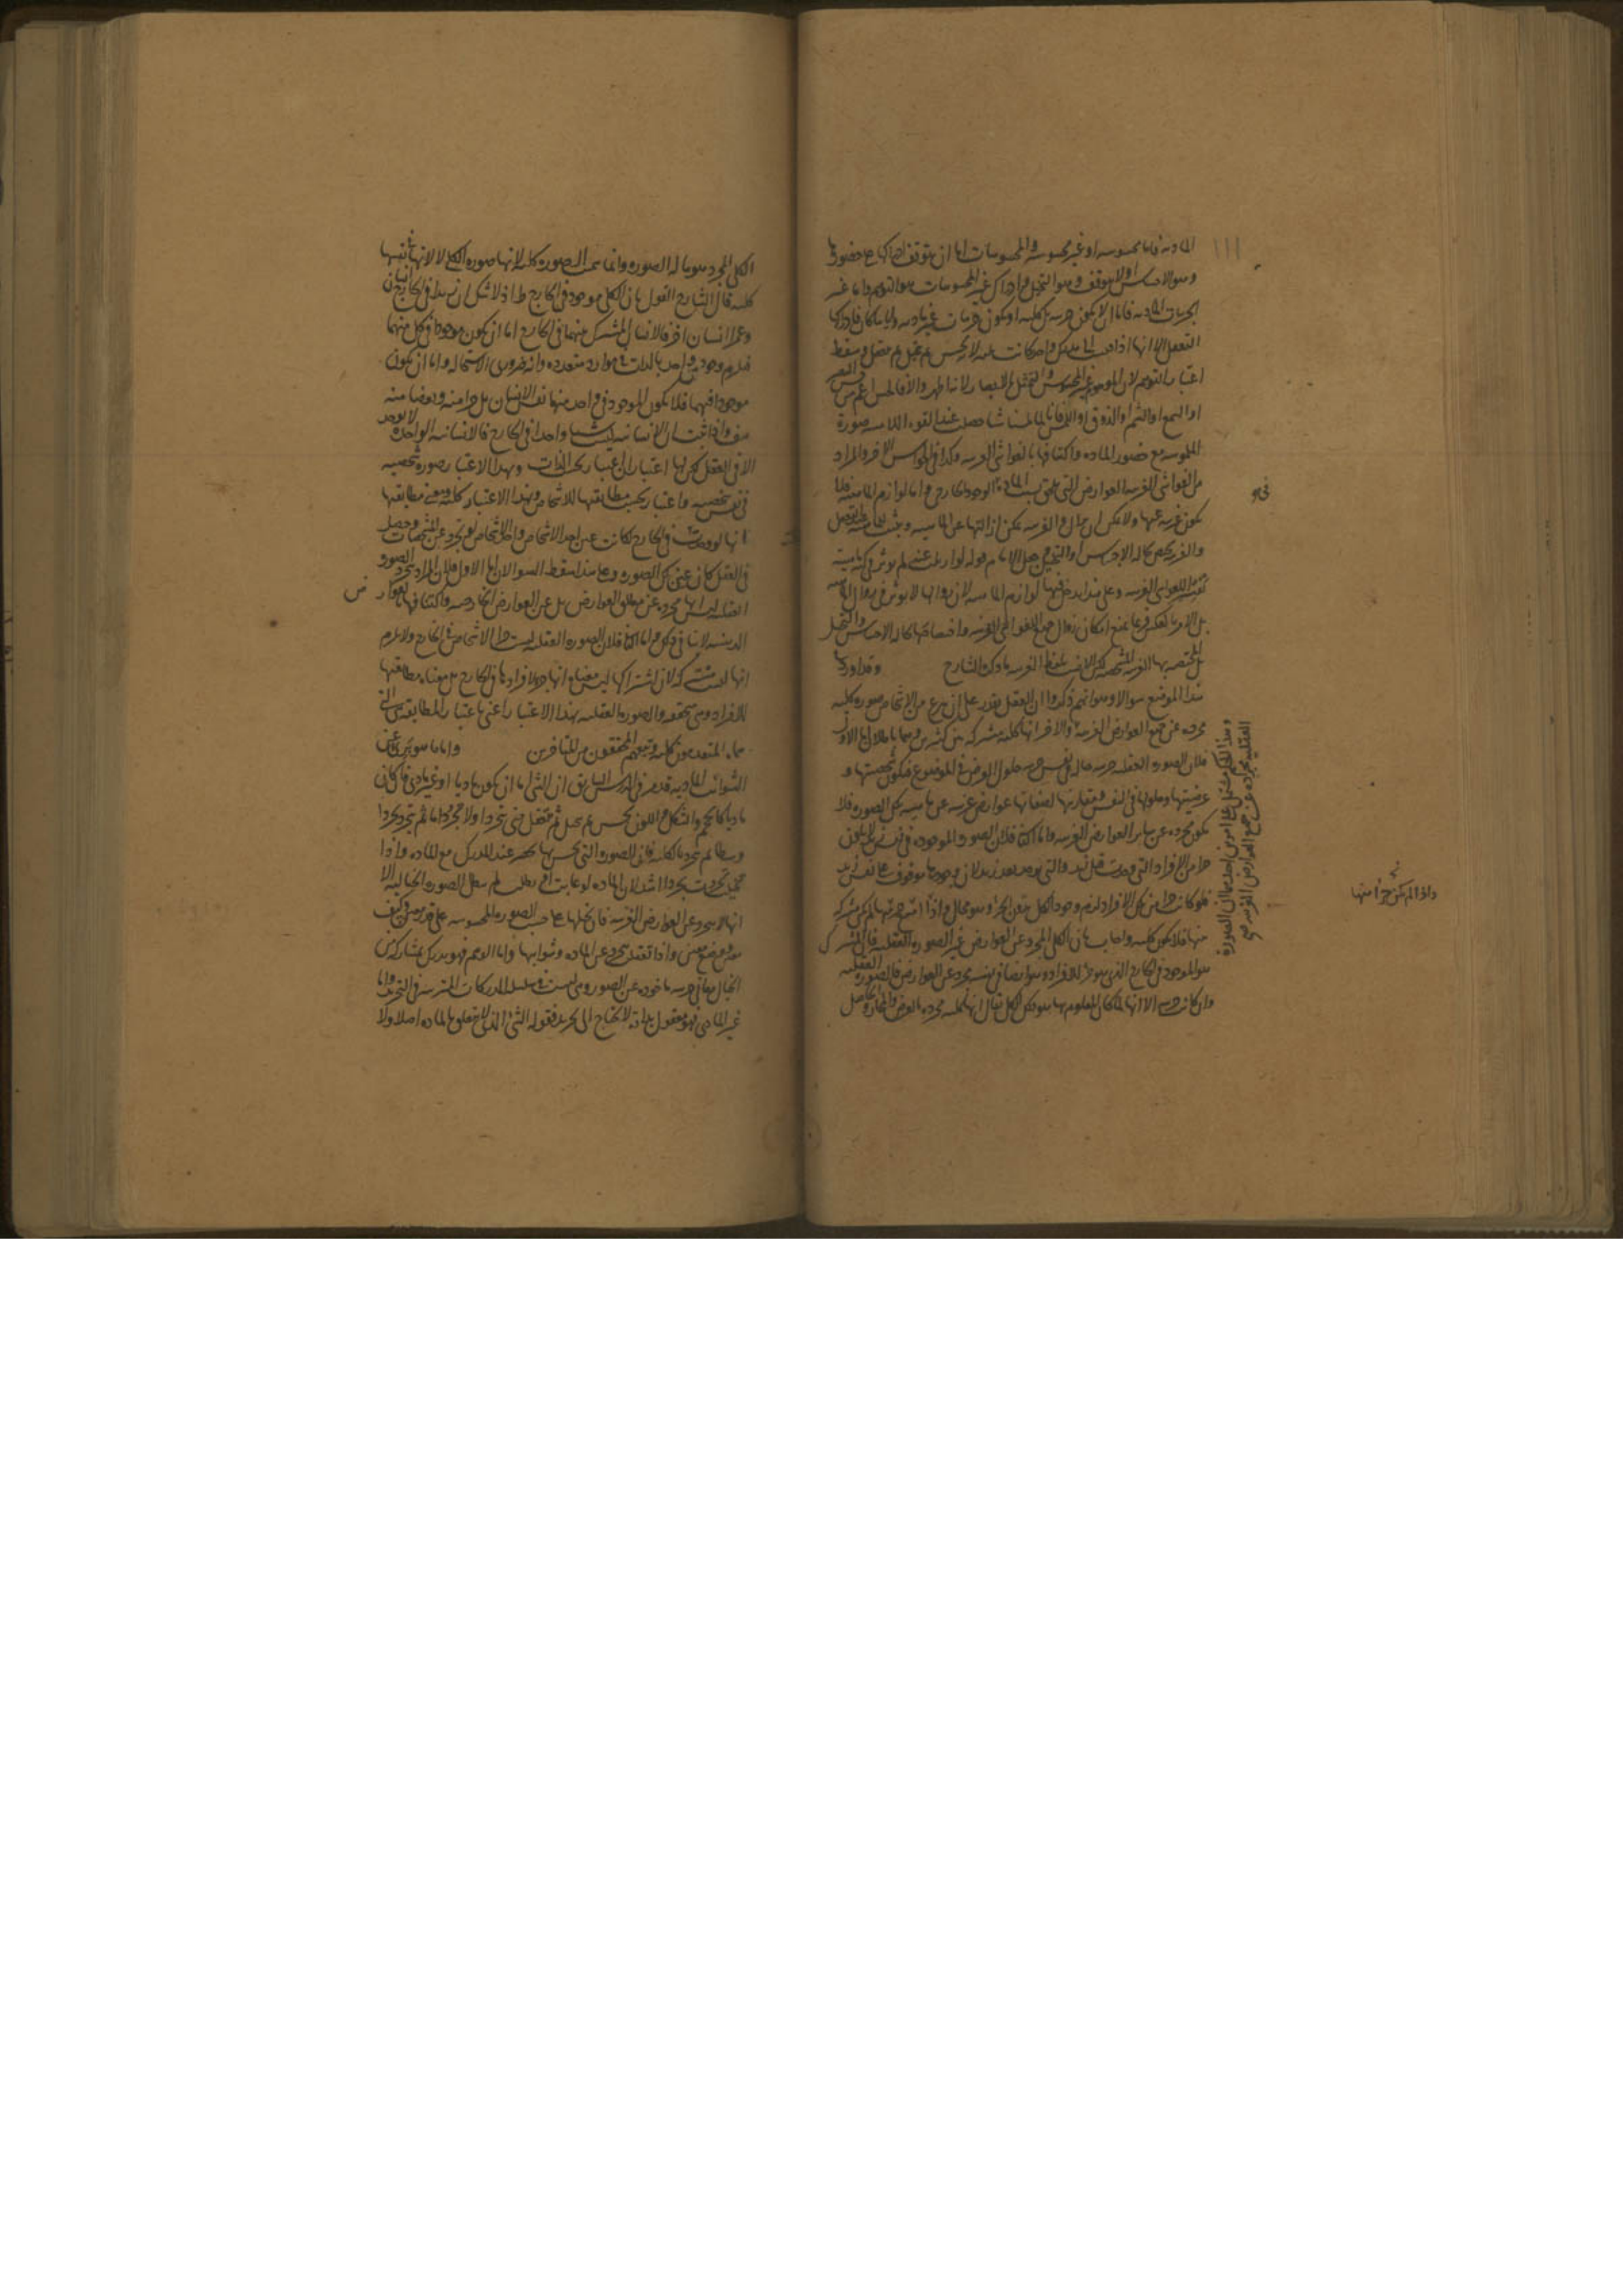 المادية فاما محسوسة او غير محسوسة والمحسوسات اما ان يتوقف ادراكها على حضورها
وهو الاحساس او لا يتوقف وهو التخيل وادراك غير المحسوسات هو التوهم واما غير
الجزئيات المادية فاما ان لا يكون جزئية بل كلية او يكون جزئيات غير مادية واياما كان فادراكها
التعقل الا انها اذا
اعتبار التوهم لان الموهوم غير المحسوس والتمثل بالابصار لانه اظهر والا فالحس اعم من البصر
او السمع او الشم او الذوق او اللمس فانا اذا لمسنا شيئا حصلت عند القوة اللامسة صورة
الملموسة مع حضور المادة واكتنافها بالغواشي الغريبة وكذا في الحواس الاخر والمراد
من الغواشي الغريبة العوارض التي تلحق بسبب المادة في الوجود الخارجي واما لوازم الماهية فلا
يكون غريبة عنها
والغريب يعم حالة الاحساس او التخيل
الغريبة وعلى هذا يدخل فيها لوازم الماهية لان زوالها لا يؤثر في زوال الماهية
بل الامر بالعكس
الغريبة ما ذكره الشارح وقد اورد
هذا الموضع سوالا وهو انهم ذكروا ان العقل يقدر على ان ينتزع من الاشخاص صورة كلية
مجردة عن جميع العوارض الغريبة والاخر انها كلية مشتركة بين كثيرين وهما باطلان اما الاول
فلان الصورة العقلية جزئية حالة في نفس جزئية حلول العرض في الموضوع فيكون تشخصها و
عرضيتها وحلولها في النفس ومقارنتها لصفاتها عوارض غريبة عن ماهية تلك الصورة فلا
يكون مجردة عن ساير العوارض الغريبة واما الثاني فلان الصورة الموجودة في نفس زيد لا يكون
جزءا من الافراد التي وجدت قبل زيد والتي يوجد بعد زيد لان وجودها موقوف على نفس زيد
فلو كانت جزءا من تلك الافراد لزم وجود الكل بدون الجزء وهو محال واذا
منها فلا يكون كلية واجاب بان الكلي المجرد عن العوارض غير الصورة العقلية فان المشترك
هو الموجود في الخارج الذي هو جزء للافراد وهو ايضا في نفسه مجرد عن العوارض فالصورة العقلية
وان كانت جزئية الا انها لما كان المعلوم بها هو ذلك الكلي يقال انها كلية مجردة بالعرض والمجاز والحاصل
وهذا الكلام مشتمل على امرين احدهما ان الصورة
العقلية مجردة عن جميع العوارض الغريبة صح
واذا لم يكن جزءا منها
الكلي المجرد هو ما له الصورة وانما سميت الصورة كلية لانها صورة الكلي لا لانها في نفسها
كلية قال الشارح القول بان الكلي موجود في الخارج خطا اذ لا شك ان زيدا في الخارج انسان
وعمرا انسان اخر فالانسان المشترك منهما في الخارج اما ان يكون موجودا في كل منهما
فيلزم وجود واحد بالذات في موارد متعددة وانه ضروري الاستحالة واما ان يكون
موجودا فيهما فلا يكون الموجود في واحد منها نفس الانسان بل جزءا منه وبعضا منه
هف واذا ثبت ان الانسانية ليست شيئا واحدا في الخارج فالانسانية الواحدة لا توجد
الا في العقل لكن لها اعتباران اعتبار بحسب الذات وبهذا الاعتبار صورة شخصية
في نفس شخصية واعتبار بحسب مطابقتها للاشخاص وبهذا الاعتبار كلية ومعنى مطابقتها
انها لو وجدت في الخارج لكانت عين احد الاشخاص واحد الاشخاص لو تجرد عن المشخصات وحصل
في العقل كان عين تلك الصورة وعلى هذا سقط السوالان اما الاول فلان المراد بتجرد الصور
العقلية ليس انها مجردة عن مطلق العوارض بل عن العوارض الخارجية واكتنافها بالعوارض
الذهنية لا ينافي ذلك واما الثاني فلان الصورة العقلية ليست جزءا للاشخاص في الخارج ولا يلزم
انها ليست مشتركة لان اشتراكها ليس معناه انها جزء لافرادها في الخارج بل معناه مطابقتها
للافراد وهي متحققة والصورة العقلية بهذا الاعتبار اعني باعتبار المطابقة هي التي
سماه المتقدمون كلية وتبعهم المحققون من المتاخرين واما ما هو بري عن
الشوائب المادية قد مر في الدرس السابق ان الشي اما ان يكون ماديا او غير مادي فان كان
ماديا كالجسم والشكل واللون يحس ثم يتخيل ثم يتعقل حتى يتجرد
وسطا ثم تجردا كاملا فان الصورة التي يحس بها يحضر عند المدرك مع المادة واذا
تخيلت تجردت تجردا اشد لان المادة لو غابت او بطلت لم يبطل الصورة الخيالية الا
انها لا تتجرد عن العوارض الغريبة فان تخيلها على حسب الصورة المحسوسة على قدر معين وكيف
معين ووضع معين واذا تعقلت تتجرد عن المادة وشوائبها واما الوهم فهو يدرك بمشاركة من
الخيال معاني جزئية ماخوذة عن الصور وهي ليست في سلسلة المدركات المترتبة في التجريد واما
غير المادي فهو معقول بذاته لا يحتاج الى تجريد فقوله الشي الذي لا تعلق له بالمادة اصلا ولا